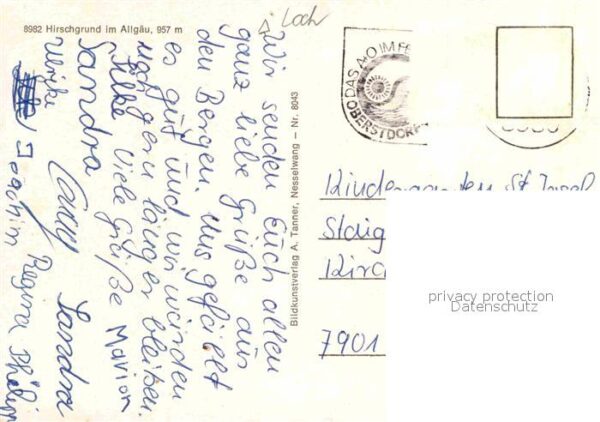 8982 Hirschgrund im Allgäu, 957 m
Loch
Wir senden Euch allen
ganz liebe Grüße aus
den Bergen. Uns gefällt
es gut und wir würden
noch gern länger bleiben.
Silke Viele Grüße Marion
Sandra Sandra
Ulrike
Joachim Regina Philipp
Bildkunstverlag A. Tanner, Nesselwang – Nr. 8043
DAS A-O IM FE
OBERSTDORF
Kindergarten St.
Staig
Kirch
7901
privacy protection
Datenschutz